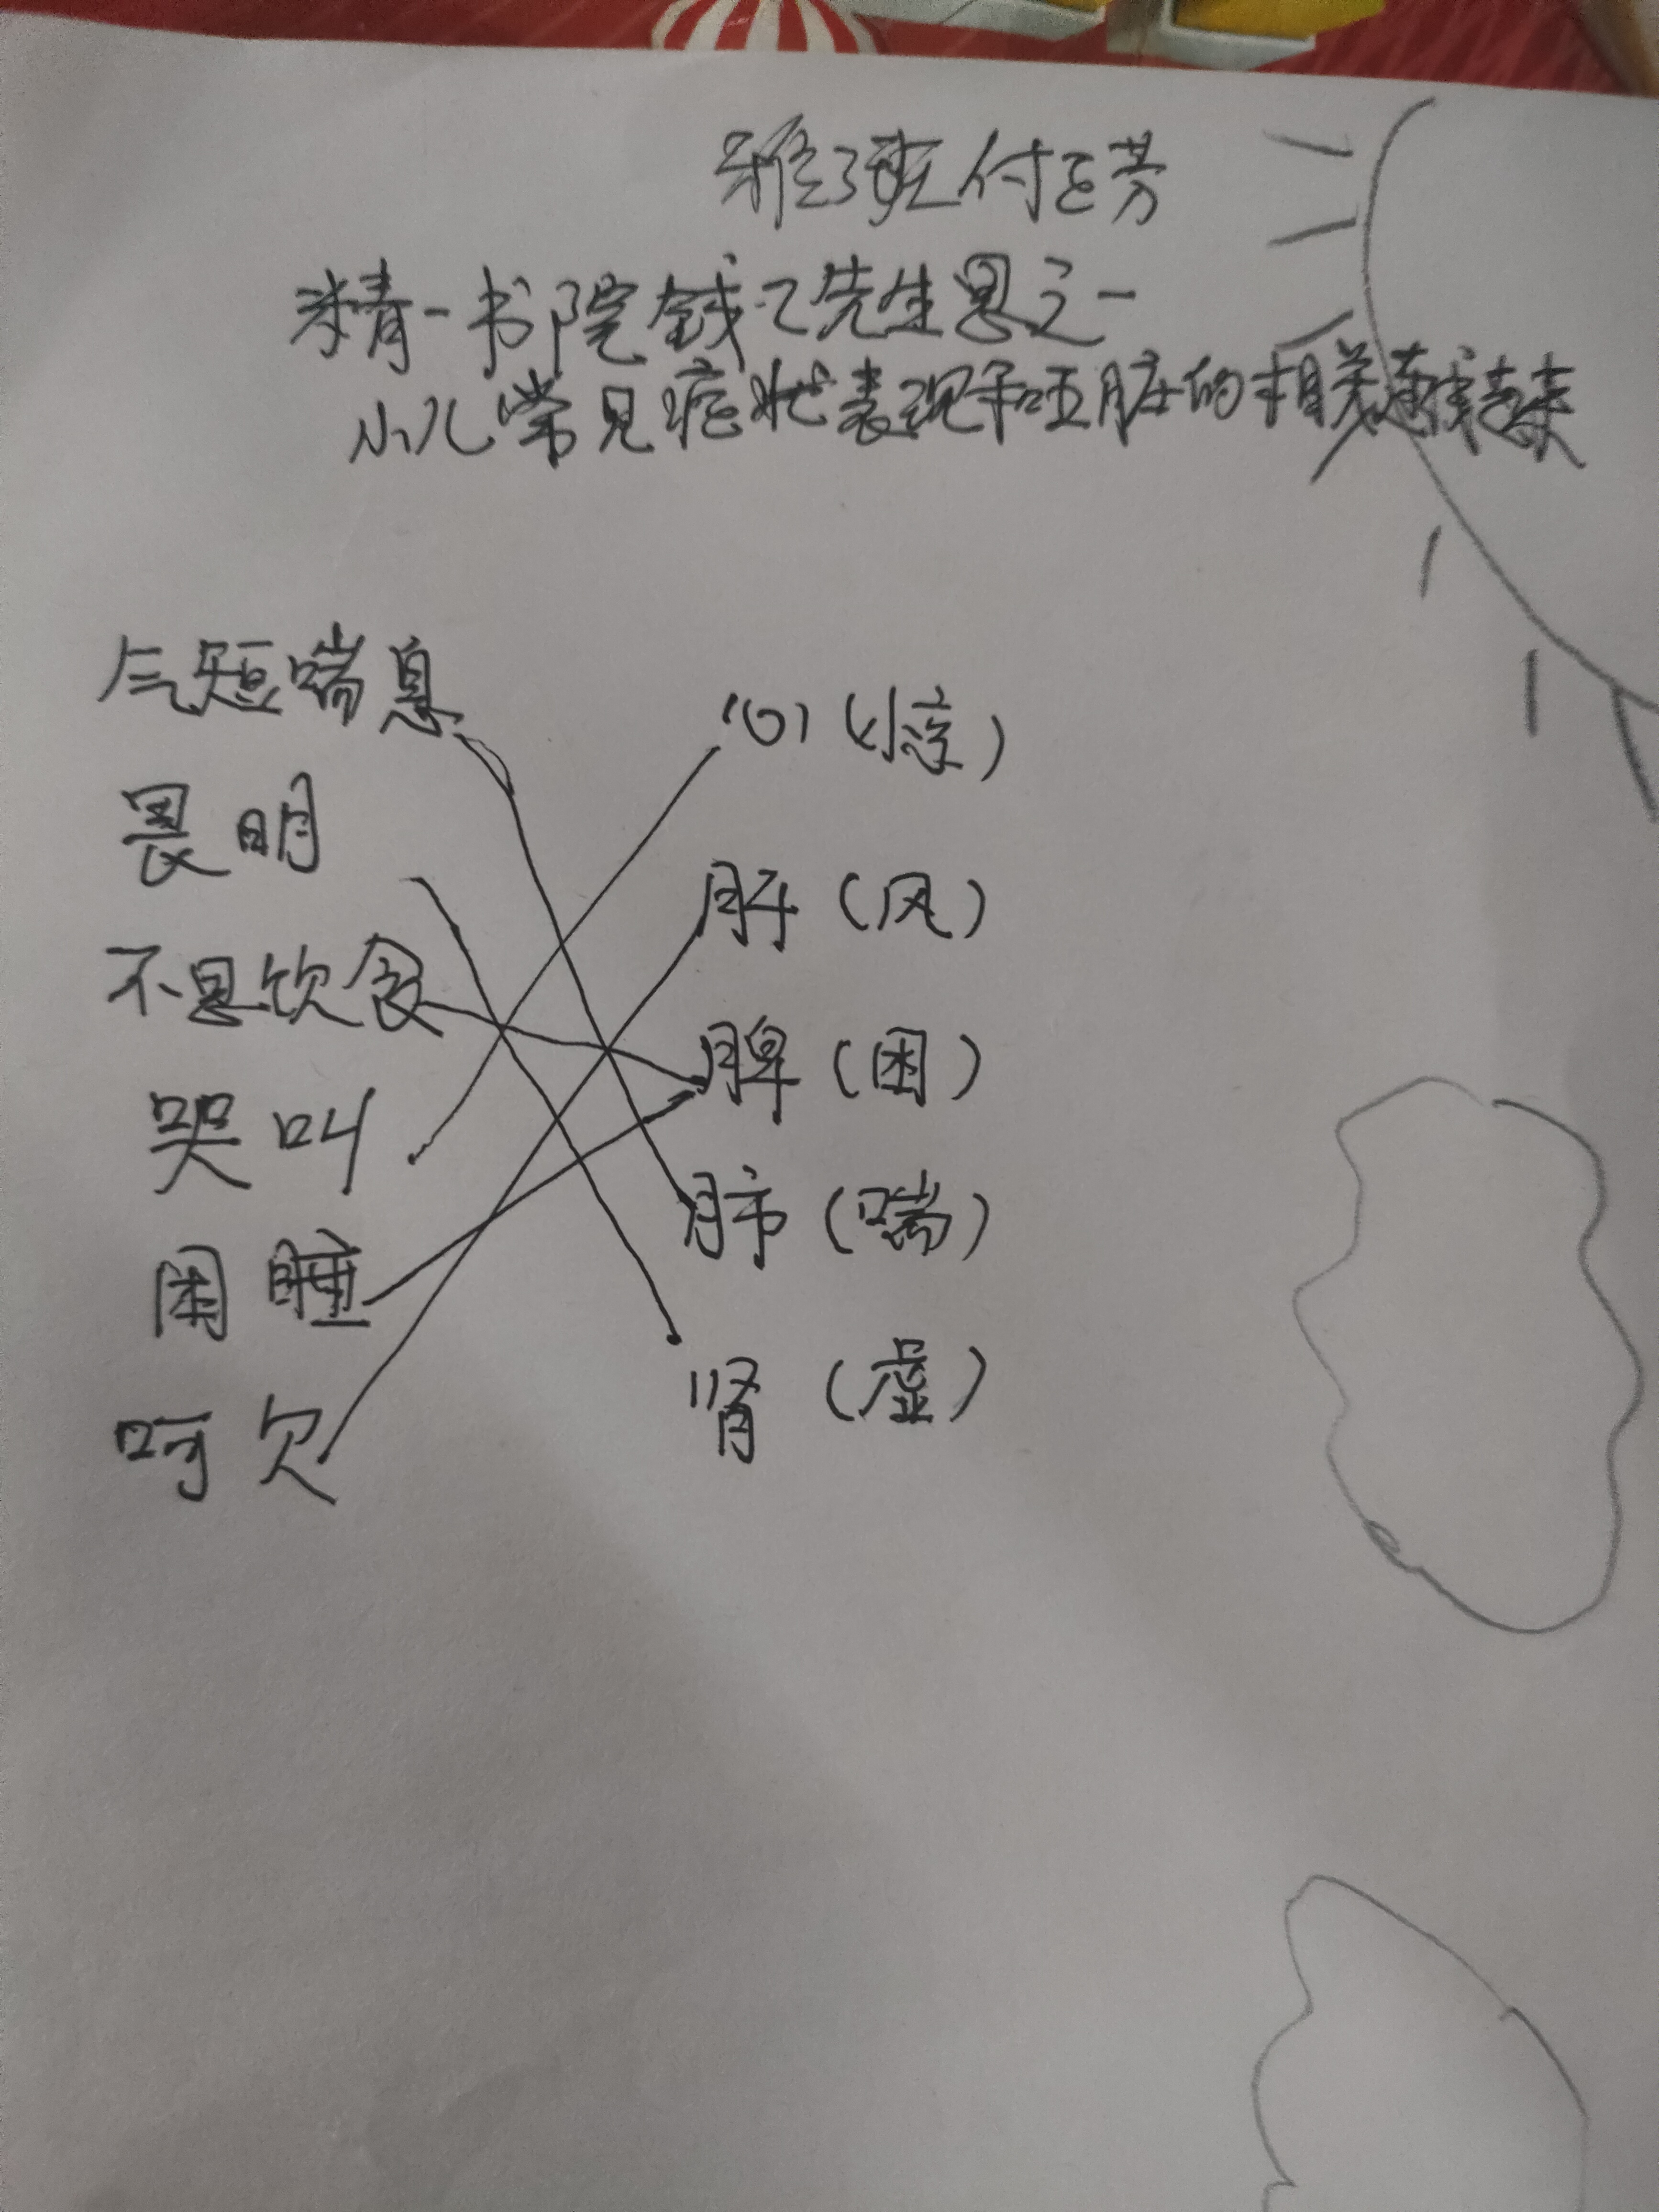 雅3班付正芳
精一书院钱乙先生思之一
小儿常见症状表现和五脏的相关连线起来
气短喘息
心（惊）
畏明
肝（风）
不思饮食
脾（困）
哭叫
肺（喘）
困睡
肾（虚）
呵欠